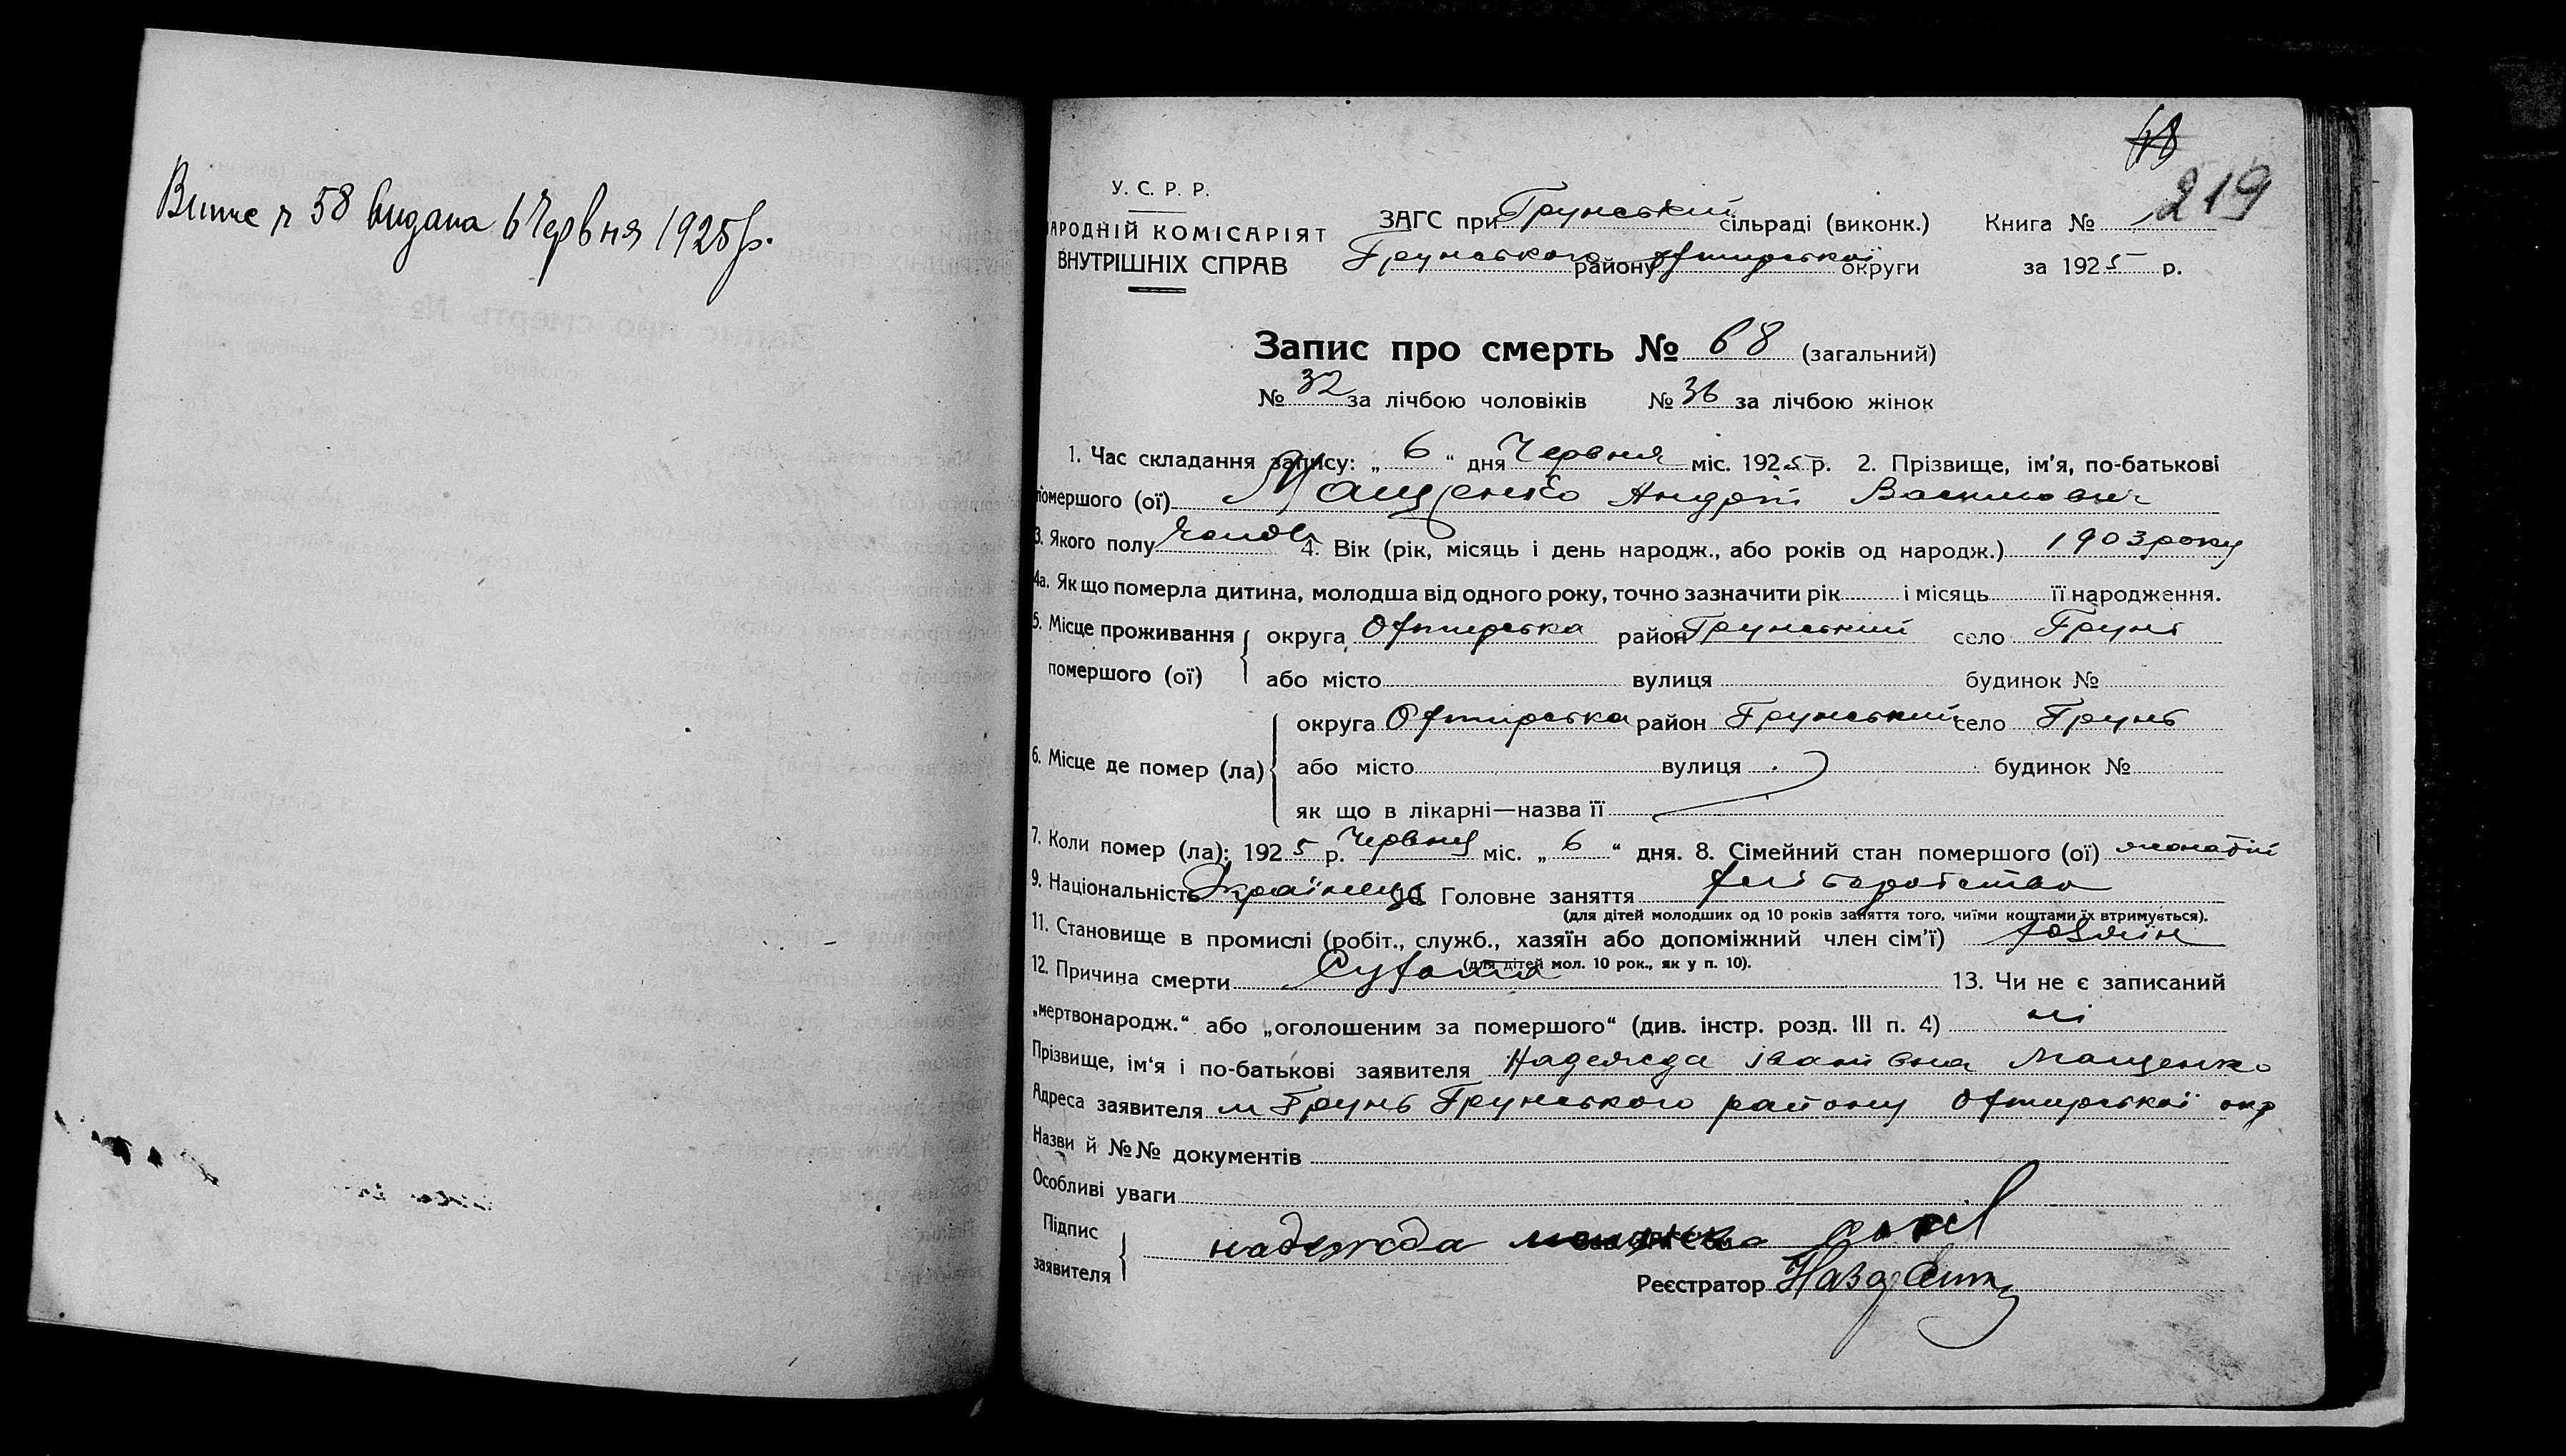 Випис № 58 видана 6 Червня 1925 р.
68
219
У. С. Р. Р.
НАРОДНІЙ КОМІСАРІЯТ
ВНУТРІШНІХ СПРАВ
ЗАГС при Грунський сільраді (виконк.) Книга №
Грунського району Охтирської округи за 1925 р.
Запис про смерть № 68 (загальний)
№ 32 за лічбою чоловіків № 36 за лічбою жінок
1. Час складання запису: „ 6 “ дня Червня міс. 1925 р. 2. Прізвище, ім'я, по-батькові
помершого (ої) Мащенко Андрій Васильович
3. Якого полу 4. Вік (рік, місяць і день народж., або років од народж.) 1903 року
4а. Як що померла дитина, молодша від одного року, точно зазначити рік і місяць її народження.
5. Місце проживання помершого (ої) округа Охтирська район Грунський село Грунь
або місто вулиця будинок №
6. Місце де помер (ла) округа Охтирська район Грунський село Грунь
або місто вулиця будинок №
як що в лікарні—назва її
7. Коли помер (ла): 1925 р. Червня міс. „ 6 “ дня. 8. Сімейний стан помершого (ої) жонатий
9. Національність Українець 10. Головне заняття хліборобство
(для дітей молодших од 10 років заняття того, чиїми коштами їх втримується).
11. Становище в промислі (робіт., служб., хазяїн або допоміжний член сім'ї) хазяїн
(для дітей мол. 10 рок., як у п. 10).
12. Причина смерти Сухоти 13. Чи не є записаний
„мертвонародж.“ або „оголошеним за помершого“ (див. інстр. розд. III п. 4) ні
Прізвище, ім'я і по-батькові заявителя Надежда Іванівна Мащенко
Адреса заявителя м Грунь Грунського району Охтирської окр
Назви й №№ документів
Особливі уваги
Підпис заявителя надежда
Реєстратор